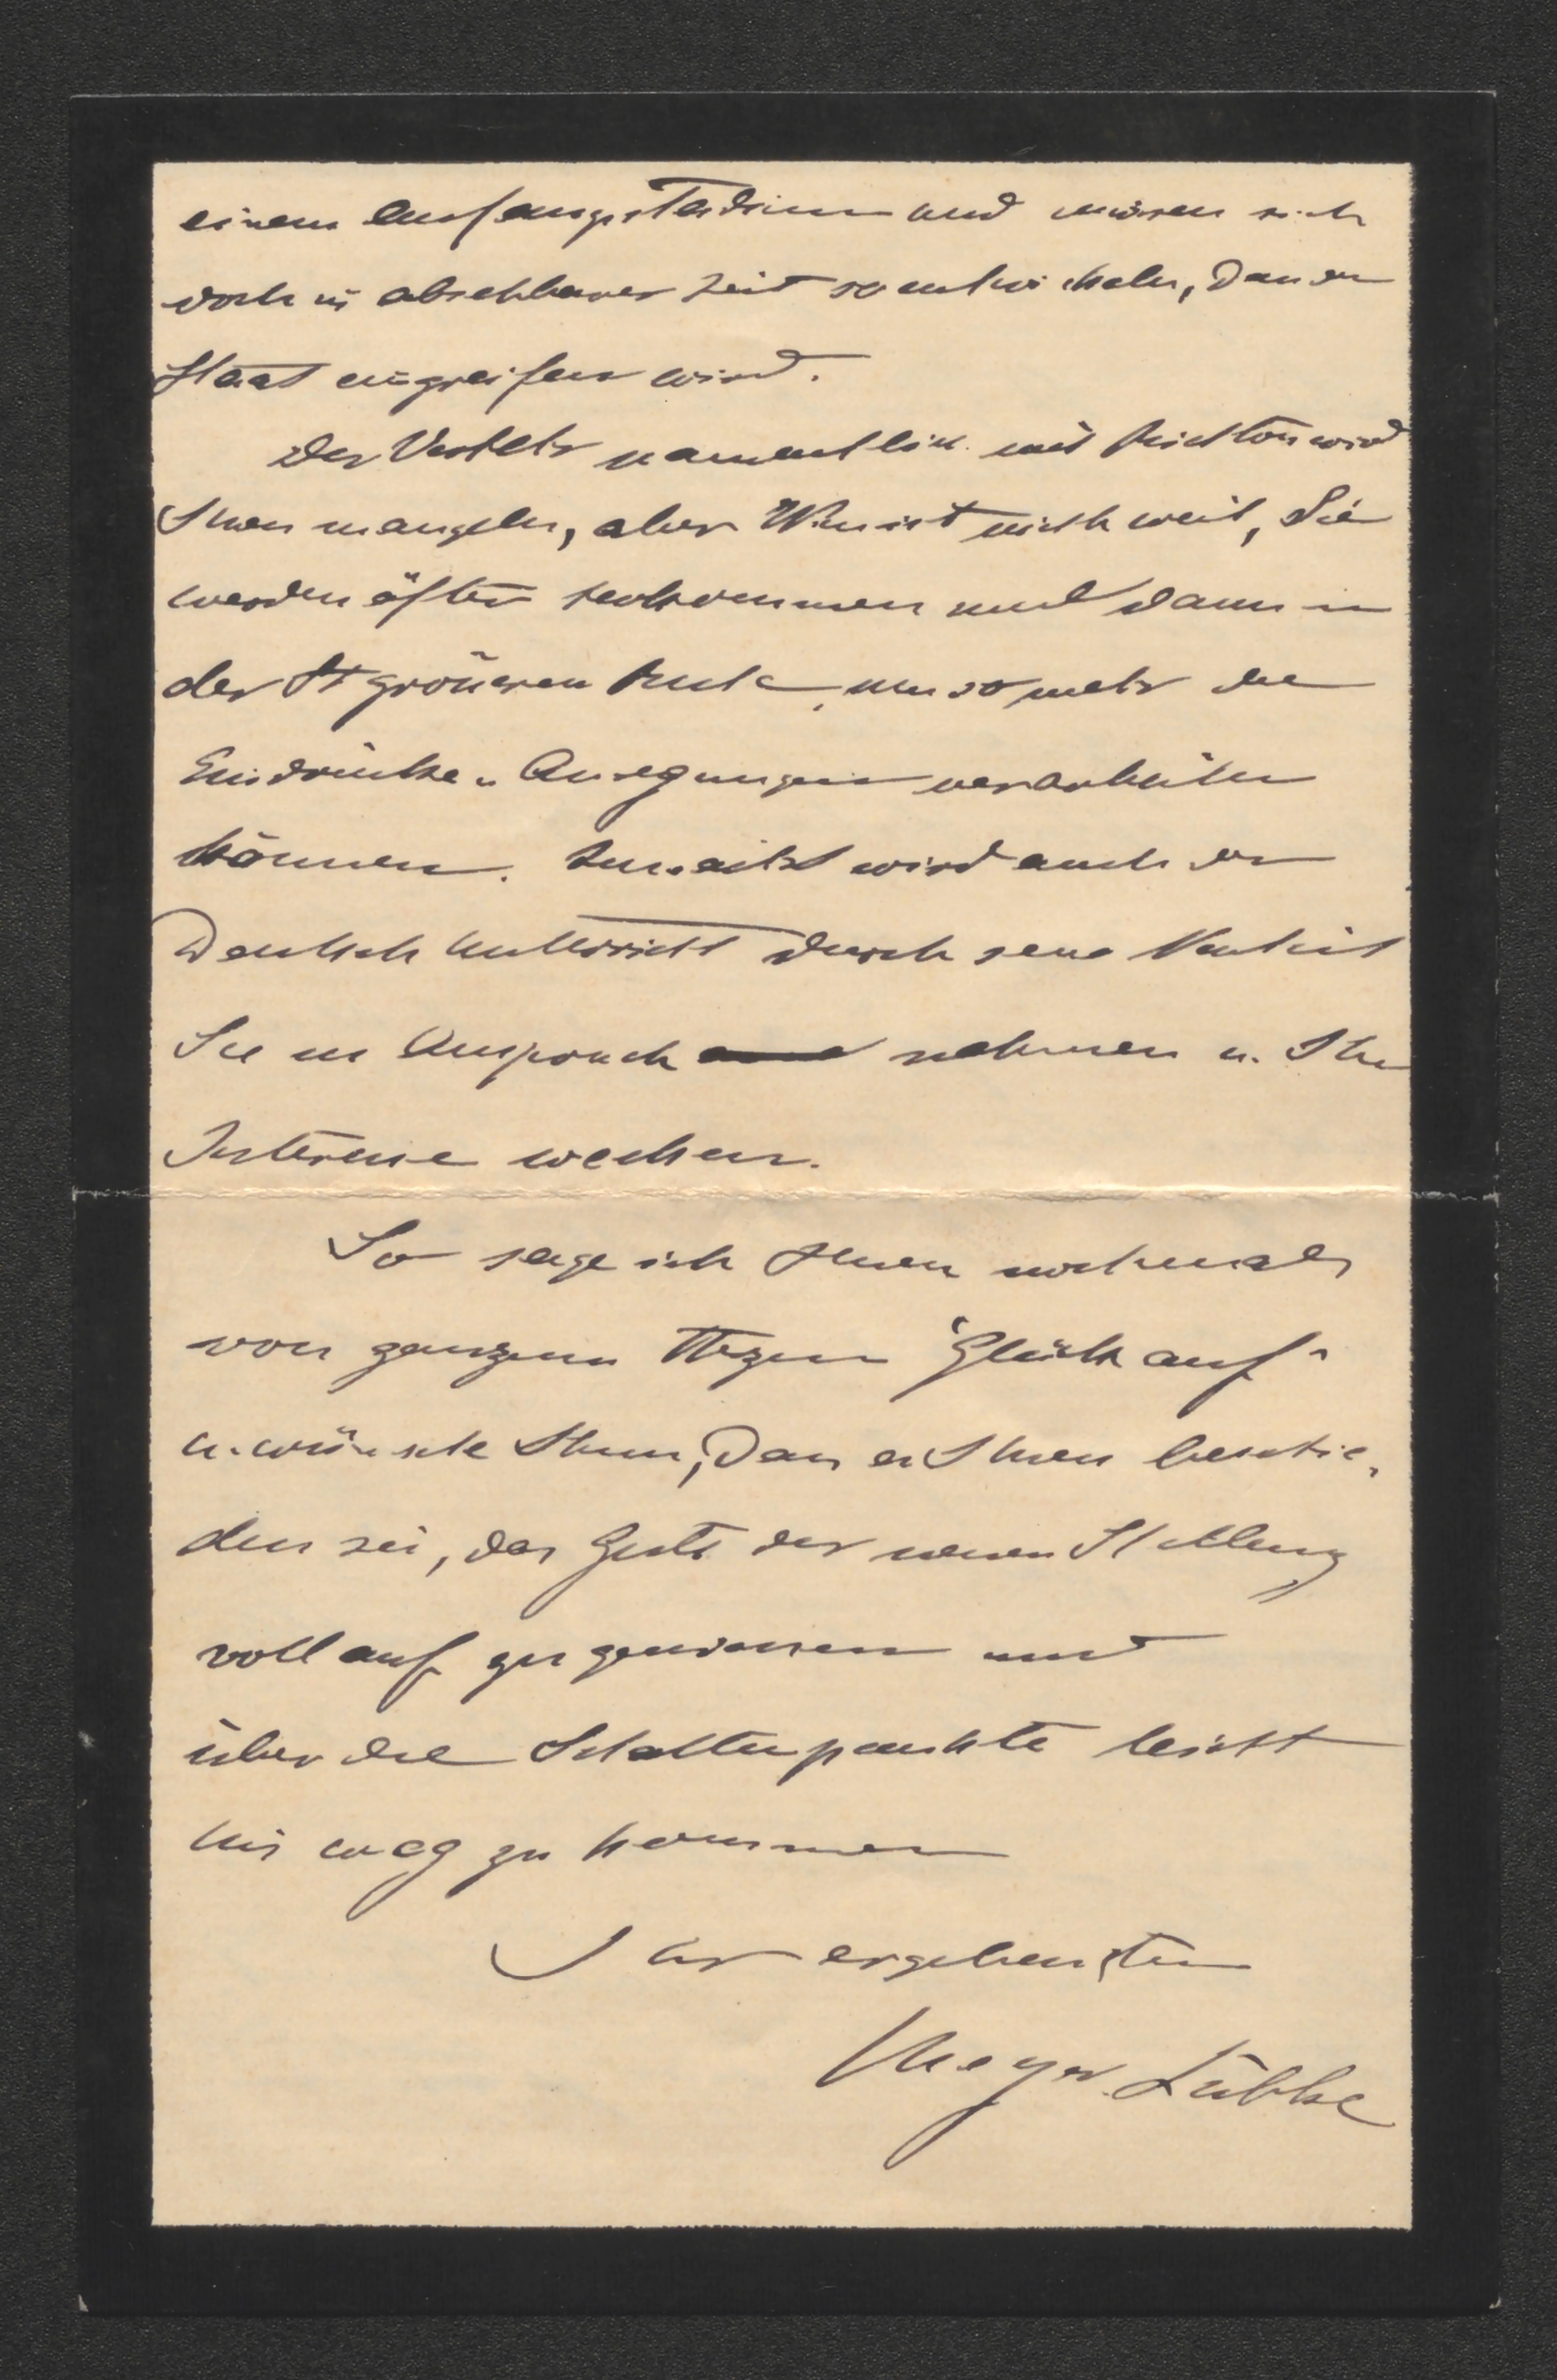 einem Anfangsstadium und müssen sich
doch in absehbarer Zeit so entwickeln, dass der
Staat eingreifen wird.
Der Verkehr namentlich mit Richter wird
Ihnen mangeln, aber Wien ist nicht weit, Sie
werden öfter herkommen und dann in
der grösseren Ruhe um so mehr die
Eindrücke u. Anregungen verarbeiten
können. Zunächst wird auch der
Deutsch Unterricht durch seine Neuheit
Sie in Anspruch nehmen u. Ihr
Interesse wecken.
So sage ich Ihnen nochmals
von ganzem Herzen "Glück auf"
u. wünsche Ihnen, dass es Ihnen beschie-
den sei, das Gute der neuen Stellung
voll auf zu geniessen und
über die Schattenpunkte leicht
hin weg zu kommen
Ihr ergebenster
Meyer-Lübke